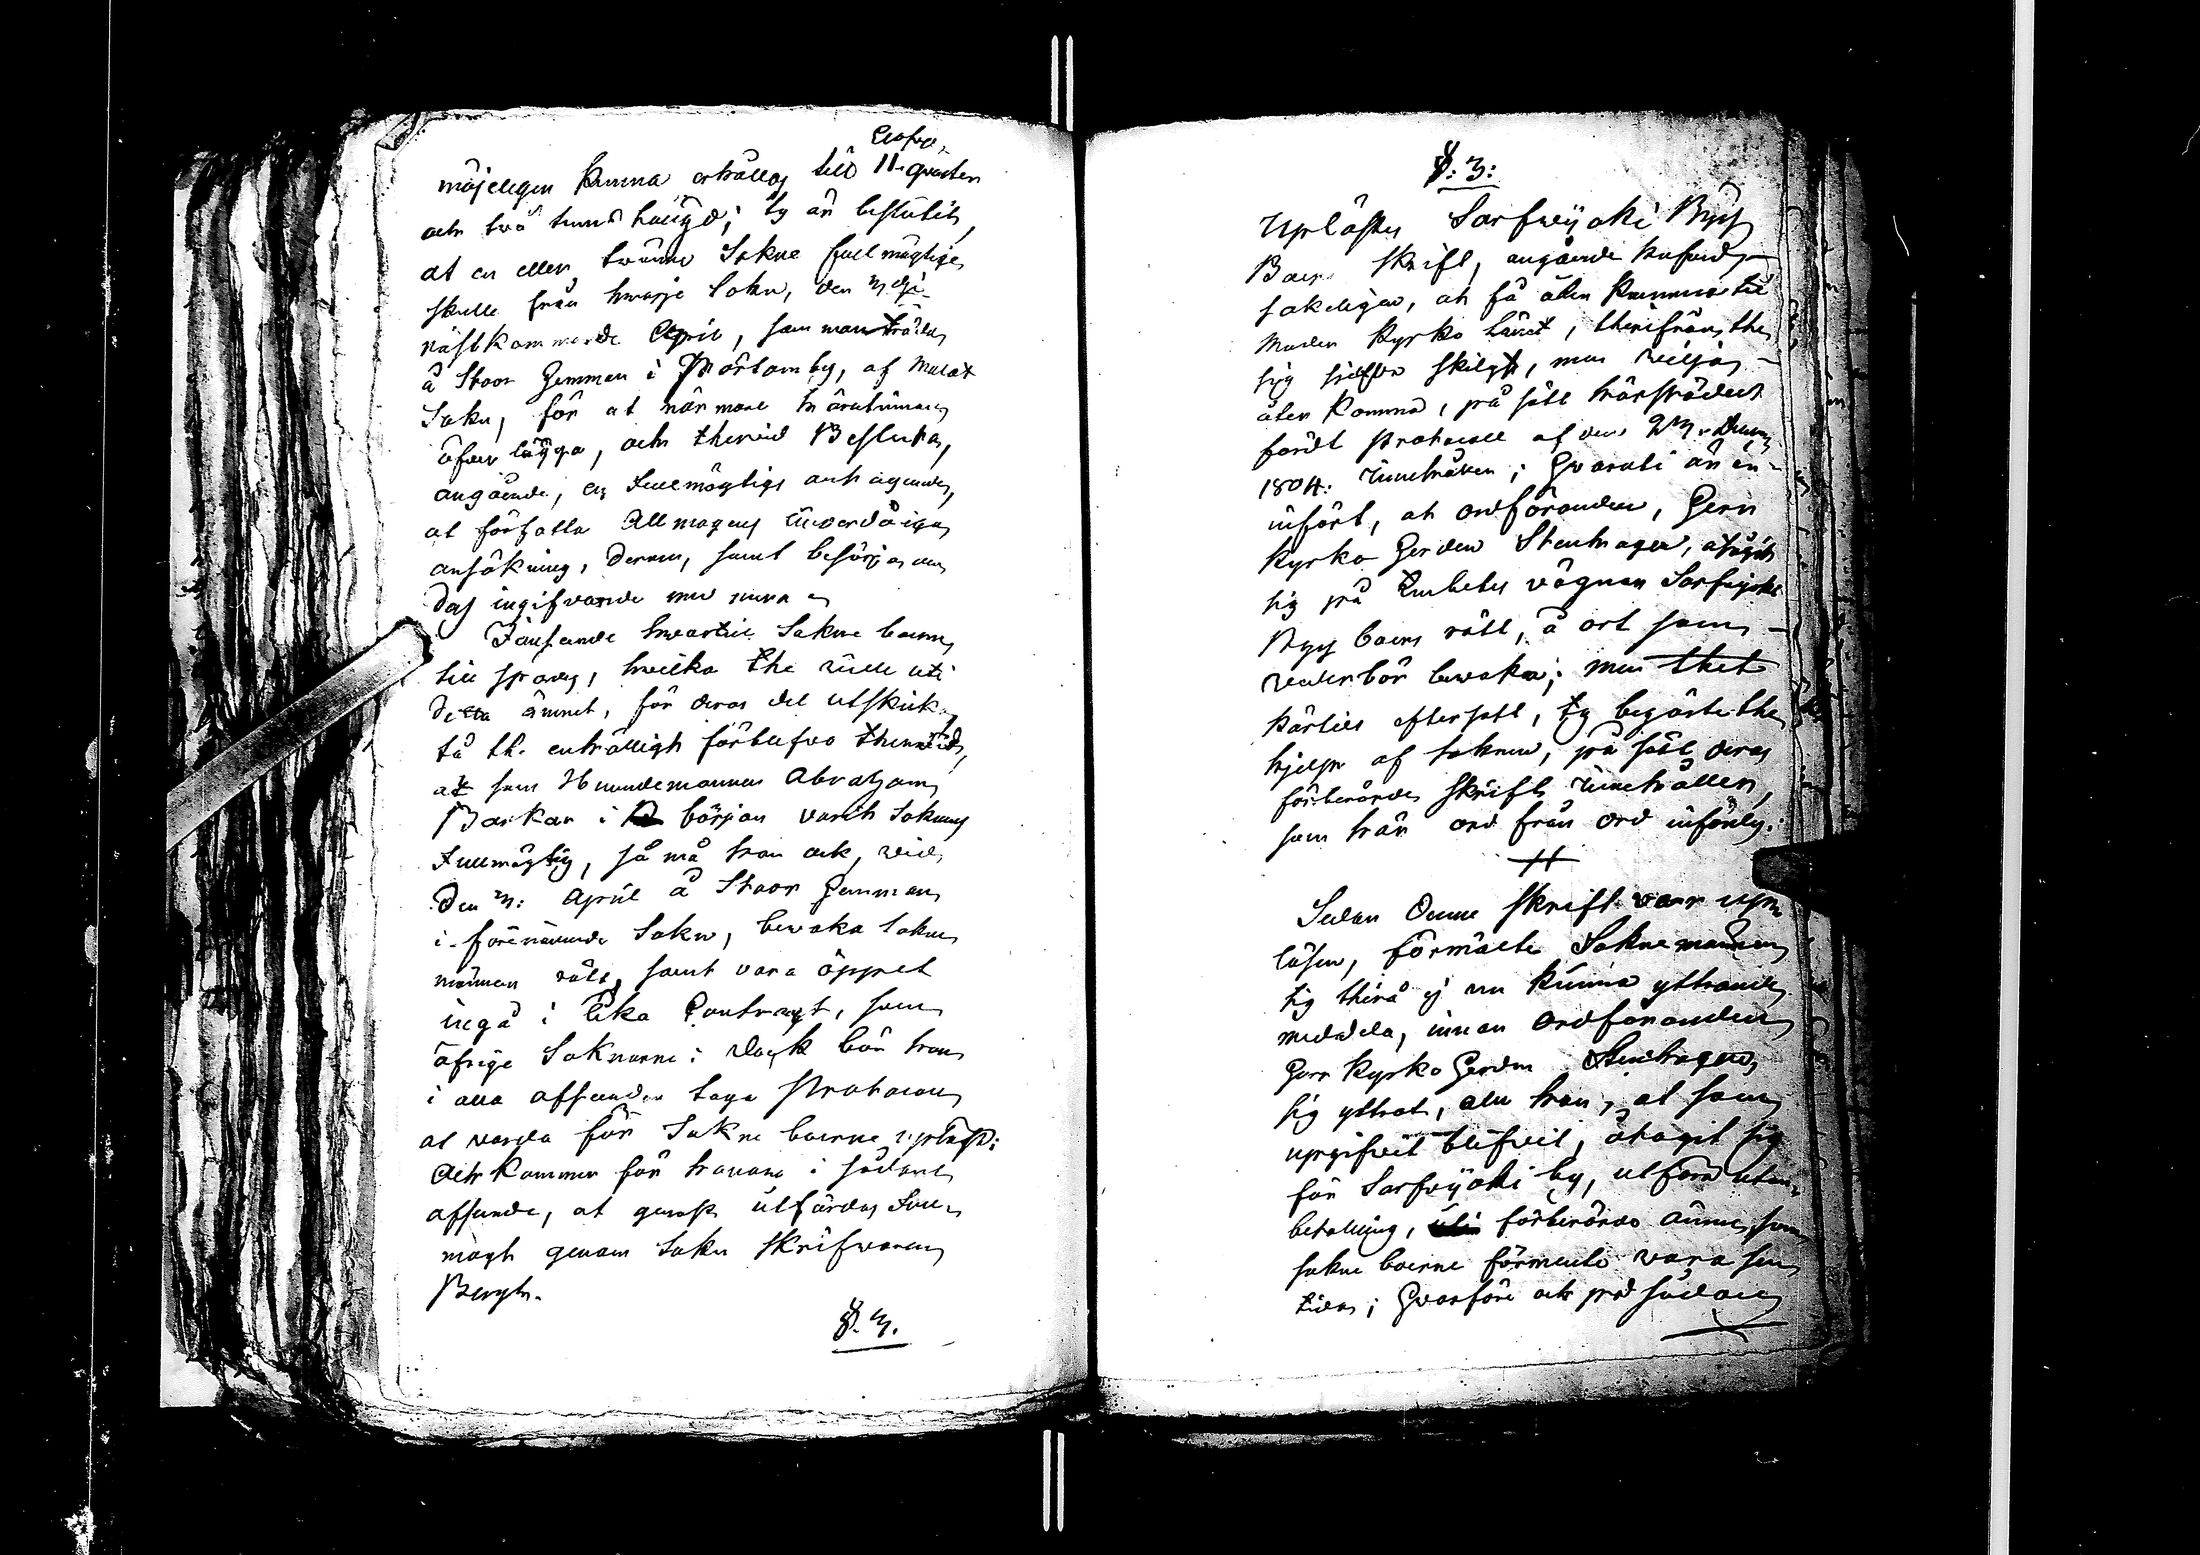 möjeligen kunna erhållas till 11. qvarter
och två tums högd; ty är beslutit,
at en eller twänne Sokne fullmägtige
skulle från hwarje Sokn, den 3dje
nästkommande April, sammanträda
å Stoor Hemman i Mörtomby, af Malax
Sokn, för at närmare härutinnan
öfver lägga, och therwid Besluta,
angående, en Fullmägtigs antagande,
at författa Allmogens underdåniga
ansökning, derom, samt besörja om
dess ingifvande med mera
Jäusende hwartil Sokne boerne
til spordes, hwilka the wille uti
detta ämnet, för deras del utskicka
tå the enhälligt förblefvo therwid,
at som Nämndemannen Abraham
Backar i början varit Soknens
Fullmägtig, så må han ock, wid
den 3: April å Stoor Hemman
i förenämnde Sokn, bewaka Sokne
männens rätt, samt vara öppet
ingå i lika Contract, som
öfrige Soknarne: dock bör han
i alla afseenden taga Protocoll
at varda för Sokne boerne upläst:
Och kommer för honom i sådant
afseende, at genast utfärdas Full-
magt genom Sokn skrifvaren
Bergh.
§. 3.
§: 3:
Uplästes Sarfwijoki Byss
Boers skrift, angående
sakeligen, at få åter komma til
Moder kyrko länet, therifrån the
sig sielfve skilgt, men wilja
åter komma, på sätt härstädes
fördt Protocoll af den
1804: innehåller; Hvaruti är in-
fört, at ordföranden, Herr
Kyrko Herden Stenhagen, åtagit
sig på Embetes vägnar Sarfwijoki
Byss boers rätt, å ort som
vederbör bewaka; men thet
härtils eftersatt, ty begärte the
hjelp af Soknen, på sätt deras
förberörde skrift innehåller,
som här ord från ord införes:
Sedan denne skrift var up-
läsen, förmälte Soknemännen
sig thärå ej nu kunna yttrande
meddela, innan ordföranden
Herr Kyrko Herden Stenhagen,
sig yttrat, om han, at som
upgifvit blifvit, åtagit sig
för Sarfwijoki by, utföra utan
betalning, förberörde ämne, som
sokne boerne förmente vara sen
tida; Hvarföre och på sådan